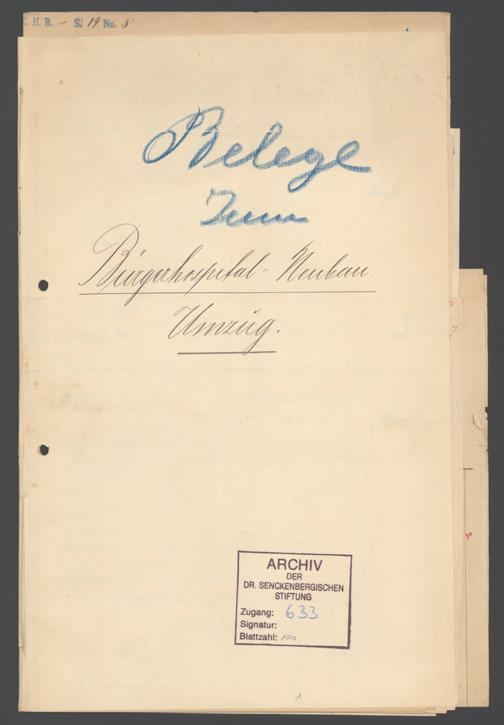 H. B. – S. 19 No. 5
Belege
zum
Bürgerhospital-Neubau
Umzug.
ARCHIV
DER
DR. SENCKENBERGISCHEN
STIFTUNG
Zugang: 633
Signatur:
Blattzahl: 100